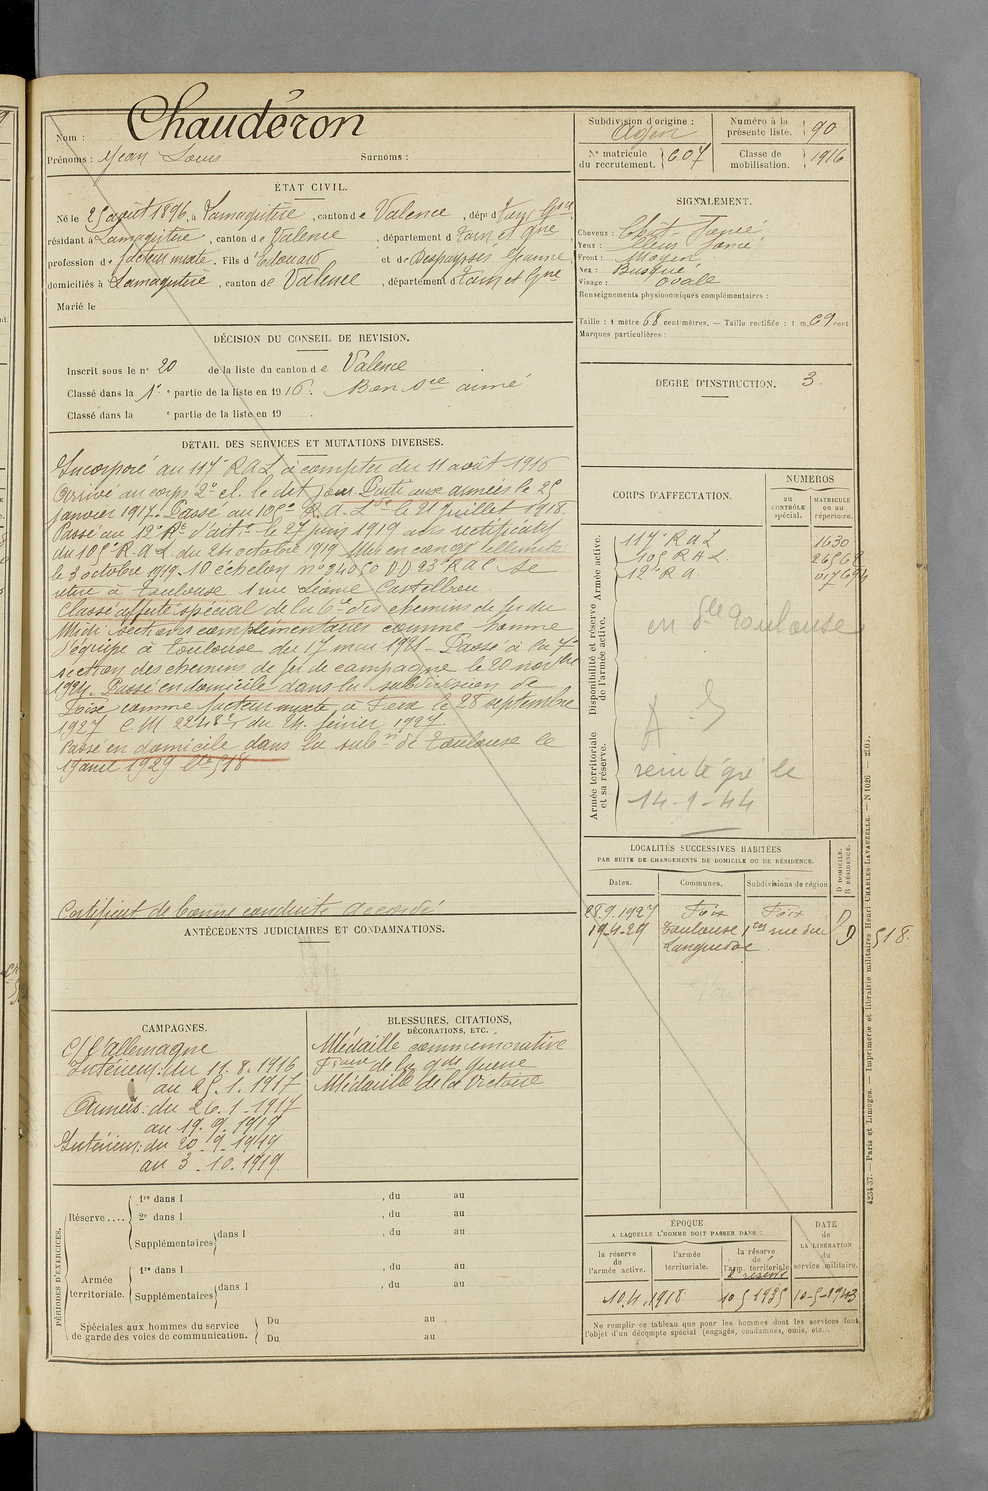 Nom : Chaudéron
Prénoms : Jean Louis Surnoms :
ÉTAT CIVIL.
Né le 25 août 1896, à Lamagistère, canton de Valence, dépt d Tarn Gne,
résidant à Lamagistère, canton de Valence, département d Tarn et Gne
profession de facteur mixte. Fils d'Edouard et de Despeyrois Jeanne,
domiciliés à Lamagistère, canton de Valence, département d Tarn et Gne
Marié le
DÉCISION DU CONSEIL DE REVISION.
Inscrit sous le n° 20 de la liste du canton de Valence
Classé dans la 1e partie de la liste en 1916. Bon sce armé
Classé dans la e partie de la liste en 19 .
DÉTAIL DES SERVICES ET MUTATIONS DIVERSES.
Incorporé au 117e RAL à compter du 11 août 1916
Arrivé au corps 2e cl. le dit jour. Parti aux armées le 25
janvier 1917. Passé au 105e R.A.L. le 21 juillet 1918.
Passé au 12e Rt d'artie le 27 juin 1919 avis rectificatif
du 105e R.A.L du 24 octobre 1919. Mis en congé illimité
le 3 octobre 1919. 10 échelon n° 34050 D.D 23e RAC se
retire à Toulouse 1 rue Léonce Castelbou
Classé affecté spécial de la 6e des chemins de fer du
Midi sections complémentaires comme homme
d'équipe à Toulouse du 17 mai 1921 - Passé à la 7e
section des chemins de fer de campagne le 20 novbre
1924. Passé en domicile dans la subdivision de
Foix comme facteur mixte, à Foix le 28 septembre
1927 C.M 2248 du 24 février 1927.
Passé en domicile dans la subon de Toulouse le
19 avril 1929 518
Certificat de bonne conduite accordé
ANTÉCÉDENTS JUDICIAIRES ET CONDAMNATIONS.
CAMPAGNES.
C/ l'Allemagne
Intérieur: du 11.8.1916
au 25.1.1917
Armées: du 26.1.1917
au 19.9.1919
Intérieur: du 20.9.1919
au 3.10.1919.
BLESSURES, CITATIONS,
DÉCORATIONS, ETC.
Médaille commémorative
de la gde guerre
Médaille de la Victoire
PÉRIODES D'EXERCICES.
Réserve....
1re dans l , du au
2e dans l , du au
Supplémentaires dans l , du au
Armée territoriale.
1re dans l , du au
Supplémentaires dans l , du au
Spéciales aux hommes du service
de garde des voies de communication.
Du au
Du au
Subdivision d'origine : Agen
Numéro à la présente liste. 90
N° matricule du recrutement. 607
Classe de mobilisation. 1916
SIGNALEMENT.
Cheveux : Chât-foncé
Yeux : bleus foncé
Front : Moyen
Nez : Busqué
Visage : ovale
Renseignements physionomiques complémentaires :
Taille : 1 mètre 68 centimètres. — Taille rectifiée : 1 m. 69 cent
Marques particulières :
DEGRÉ D'INSTRUCTION. 3
CORPS D'AFFECTATION.
NUMÉROS
au CONTRÔLE spécial.
MATRICULE ou au répertoire.
Armée active.
Disponibilité et réserve de l'armée active.
Armée territoriale et sa réserve.
117e RAL 1630
105 RAL 26562
12e RA
en Toulouse
A S
reintégré le
14-1-44
LOCALITÉS SUCCESSIVES HABITÉES
PAR SUITE DE CHANGEMENTS DE DOMICILE OU DE RÉSIDENCE.
Dates. Communes. Subdivisions de région
D DOMICILE. R RÉSIDENCE.
28.9.1927 Foix Foix D
19-4-29 Toulouse rue du D 518.
Languedoc
ÉPOQUE
A LAQUELLE L'HOMME DOIT PASSER DANS :
DATE de LA LIBÉRATION du service militaire.
la réserve de l'armée active.
l'armée territoriale.
la réserve de l'arm. territoriale
10.4.1918 10 5 1935 10-5-1943
Ne remplir ce tableau que pour les hommes dont les services font
l'objet d'un décompte spécial (engagés, condamnés, omis, etc...
4234-37. — Paris et Limoges. — Imprimerie et librairie militaires Henri CHARLES-LAVAUZELLE. — N 1026